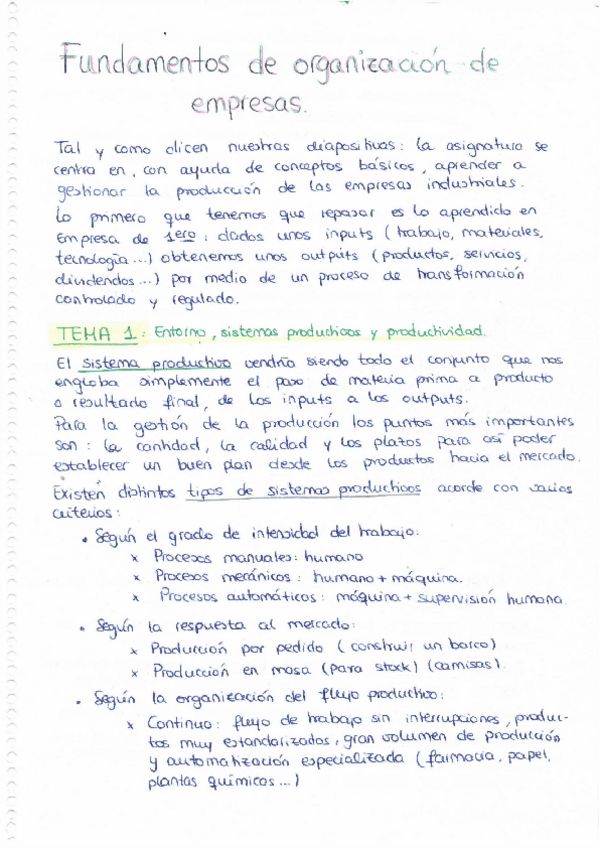 Fundamentos de organización de
empresas.
Tal y como dicen nuestras diapositivas: la asignatura se
centra en, con ayuda de conceptos básicos, aprender a
gestionar la producción de las empresas industriales.
Lo primero que tenemos que repasar es lo aprendido en
Empresa de 1ero: dados unos inputs (trabajo, materiales,
tecnología...) obtenemos unos outputs (productos, servicios,
dividendos...) por medio de un proceso de transformación
controlado y regulado.
TEMA 1: Entorno, sistemas productivos y productividad.
El sistema productivo vendría siendo todo el conjunto que nos
engloba simplemente el paso de materia prima a producto
o resultado final, de los inputs a los outputs.
Para la gestión de la producción los puntos más importantes
son: la cantidad, la calidad y los plazos para así poder
establecer un buen plan desde los productos hacia el mercado.
Existen distintos tipos de sistemas productivos acorde con varios
criterios:
• Según el grado de intensidad del trabajo:
x Procesos manuales: humano
x Procesos mecánicos: humano + máquina.
x Procesos automáticos: máquina + supervisión humana.
• Según la respuesta al mercado:
x Producción por pedido (construir un barco)
x Producción en masa (para stock) (camisas).
• Según la organización del flujo productivo:
x Continuo: flujo de trabajo sin interrupciones, produc-
tos muy estandarizados, gran volumen de producción
y automatización especializada (farmacia, papel,
plantas químicas...)